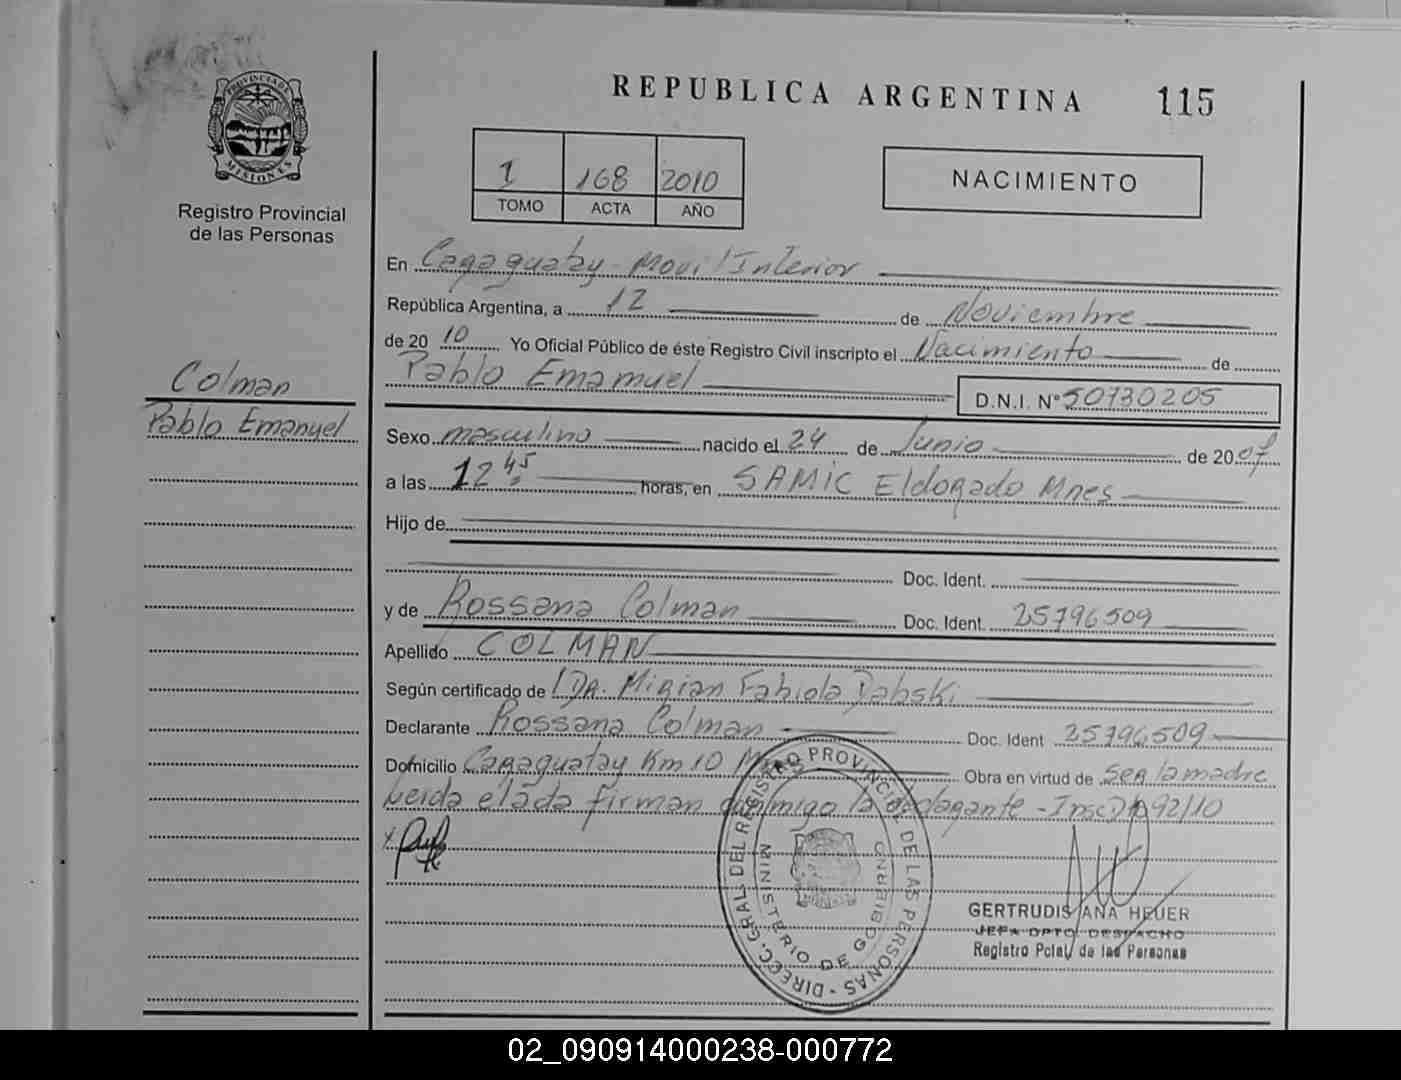 REPUBLICA ARGENTINA 115
PROVINCIA DE MISIONES
Registro Provincial
de las Personas
1 168 2010
TOMO ACTA AÑO
NACIMIENTO
En Caraguatay - Movil Interior
República Argentina, a 12 de Noviembre
de 2010 Yo Oficial Público de éste Registro Civil inscripto el Nacimiento de
Pablo Emanuel D.N.I. Nº 50730205
Colman
Pablo Emanuel
Sexo masculino nacido el 24 de Junio de 2007
a las 12 45 horas, en SAMIC Eldorado Mnes
Hijo de
Doc. Ident.
y de Rossana Colman Doc. Ident. 25796509
Apellido COLMAN
Según certificado de DRA. Mirian Fabiola Dabski
Declarante Rossana Colman Doc. Ident 25796509
Domicilio Caraguatay Km 10 Mnes Obra en virtud de ser la madre
Leida el acta firman conmigo la declarante - 1092/10
DIRECC. GRAL. DEL REGISTRO PROVINCIAL DE LAS PERSONAS -
MINISTERIO DE GOBIERNO
GERTRUDIS ANA HEUER
JEFA DPTO. DESPACHO
Registro Pcial. de las Personas
02_090914000238-000772